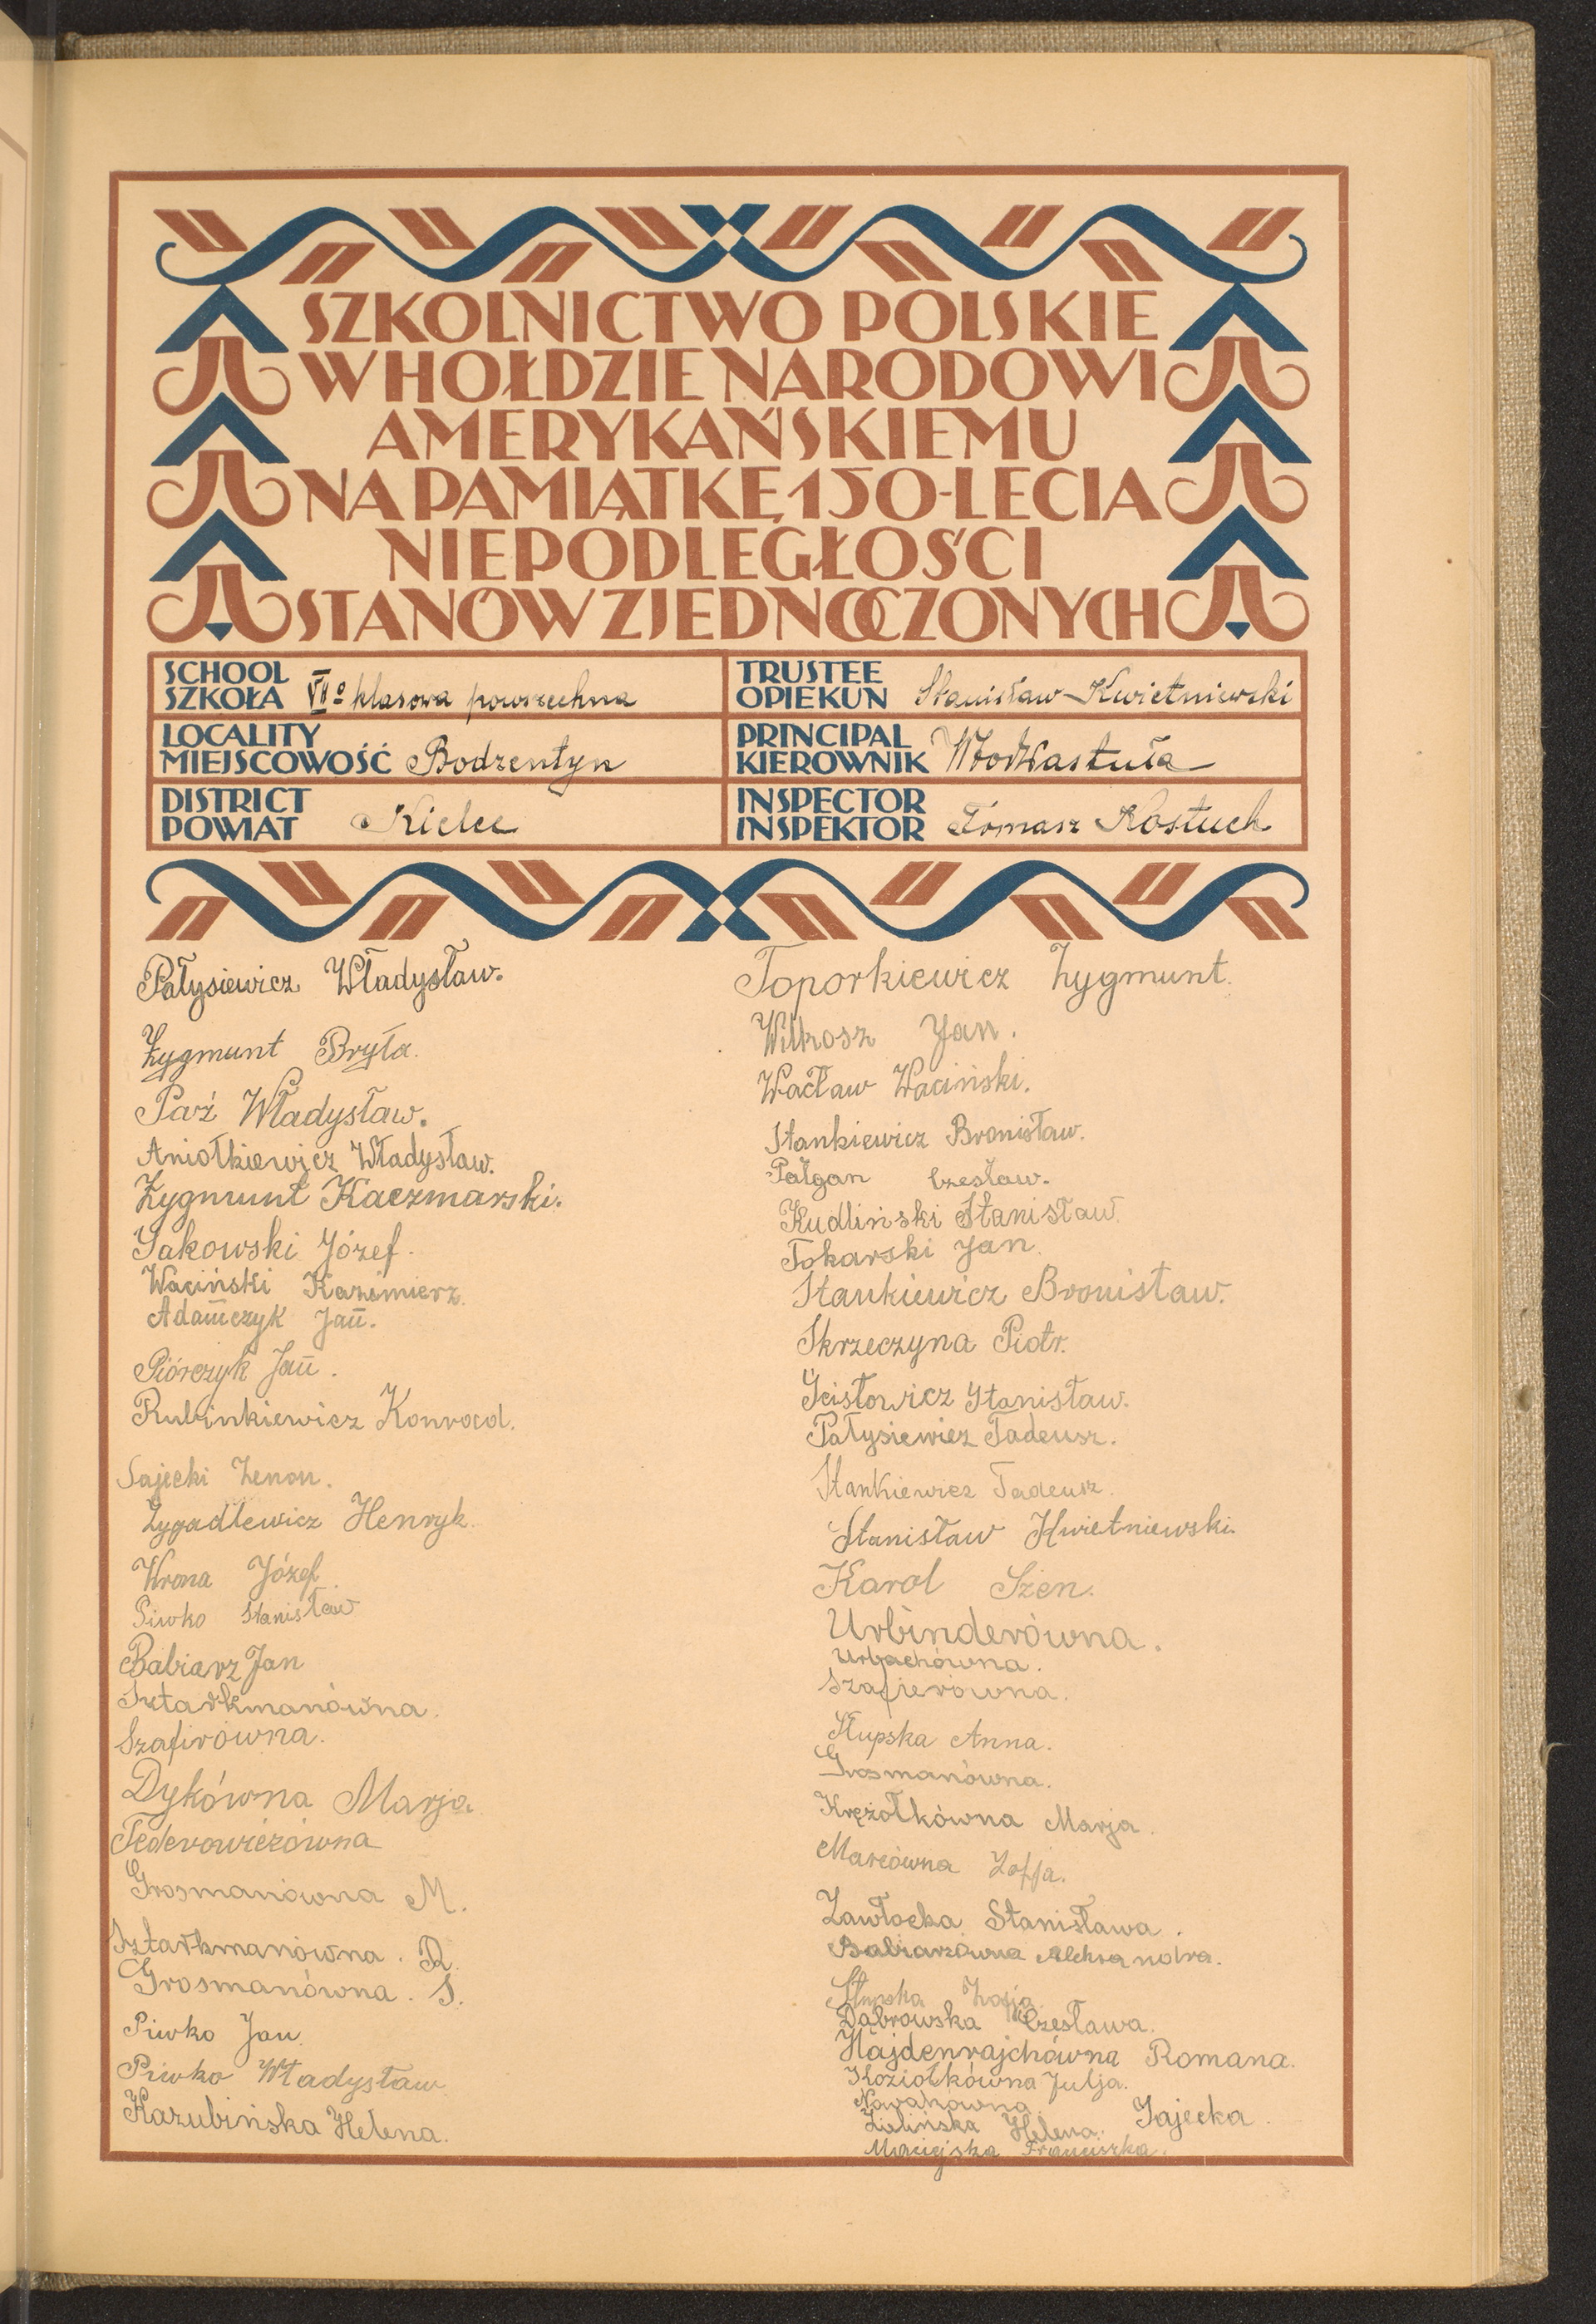 SZKOLNICTWO POLSKIE
W HOŁDZIE NARODOWI
AMERYKAŃSKIEMU
NA PAMIĄTKĘ 150-LECIA
NIEPODLEGŁOŚCI
STANÓW ZJEDNOCZONYCH
SCHOOL
SZKOŁA VIIo klasowa powszechna
TRUSTEE
OPIEKUN Stanisław Kwietniewski
LOCALITY
MIEJSCOWOŚĆ Bodzentyn
PRINCIPAL
KIEROWNIK
DISTRICT
POWIAT Kielce
INSPECTOR
INSPEKTOR Tomasz Kostuch
Pałysiewicz Władysław.
Zygmunt Bryła.
Paź Władysław.
Aniołkiewicz Władysław.
Zygmunt Kaczmarski.
Sakowski Józef.
Waciński Kazimierz.
Adamczyk Jan.
Piórczyk Jan.
Rubinkiewicz Konrad.
Sajecki Zenon.
Zygadlewicz Henryk.
Wrona Józef.
Piwko Stanisław
Babiarz Jan
Sztarkmanówna.
Szafirówna.
Dykówna Marja
Federowiczówna
Grosmanówna M.
Sztarkmanówna. R.
Grosmanówna. S.
Piwko Jan
Piwko Władysław
Kazubińska Helena.
Toporkiewicz Zygmunt.
Wilkosz Jan.
Wacław Waciński.
Stankiewicz Bronisław.
Pałgan Czesław.
Kudliński Stanisław
Tokarski Jan.
Stankiewicz Bronisław.
Skrzeczyna Piotr.
Scisłowicz Stanisław.
Pałysiewicz Tadeusz.
Stankiewicz Tadeusz.
Stanisław Kwietniewski.
Karol Szen.
Urbinderówna.
Urbachówna.
Szafierowna.
Słupska Anna.
Grosmanówna.
Krężołkówna Marja.
Marcówna Zofja.
Zawłocka Stanisława.
Babiarzówna Aleksandra.
Słupska Zofja
Dąbrowska Czesława.
Hajdenrajchówna Romana.
Koziołkówna Julja.
Nowakówna
Zielińska Helena. Sajecka.
Maciejska Franciszka.